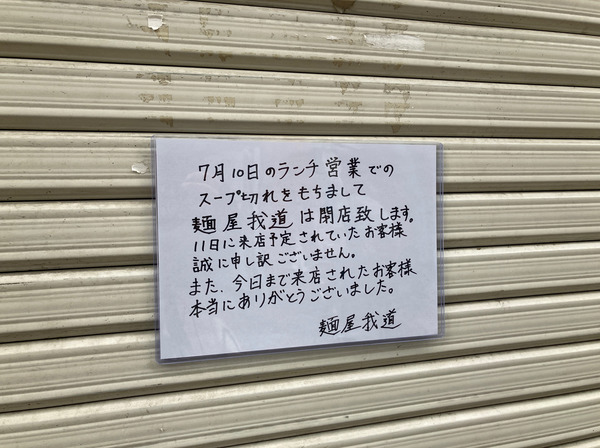 7月10日のランチ営業での
スープ切れをもちまして
麺屋我道は閉店致します。
11日に来店予定されていたお客様
誠に申し訳ございません。
また、今日まで来店されたお客様
本当にありがとうございました。
麺屋我道